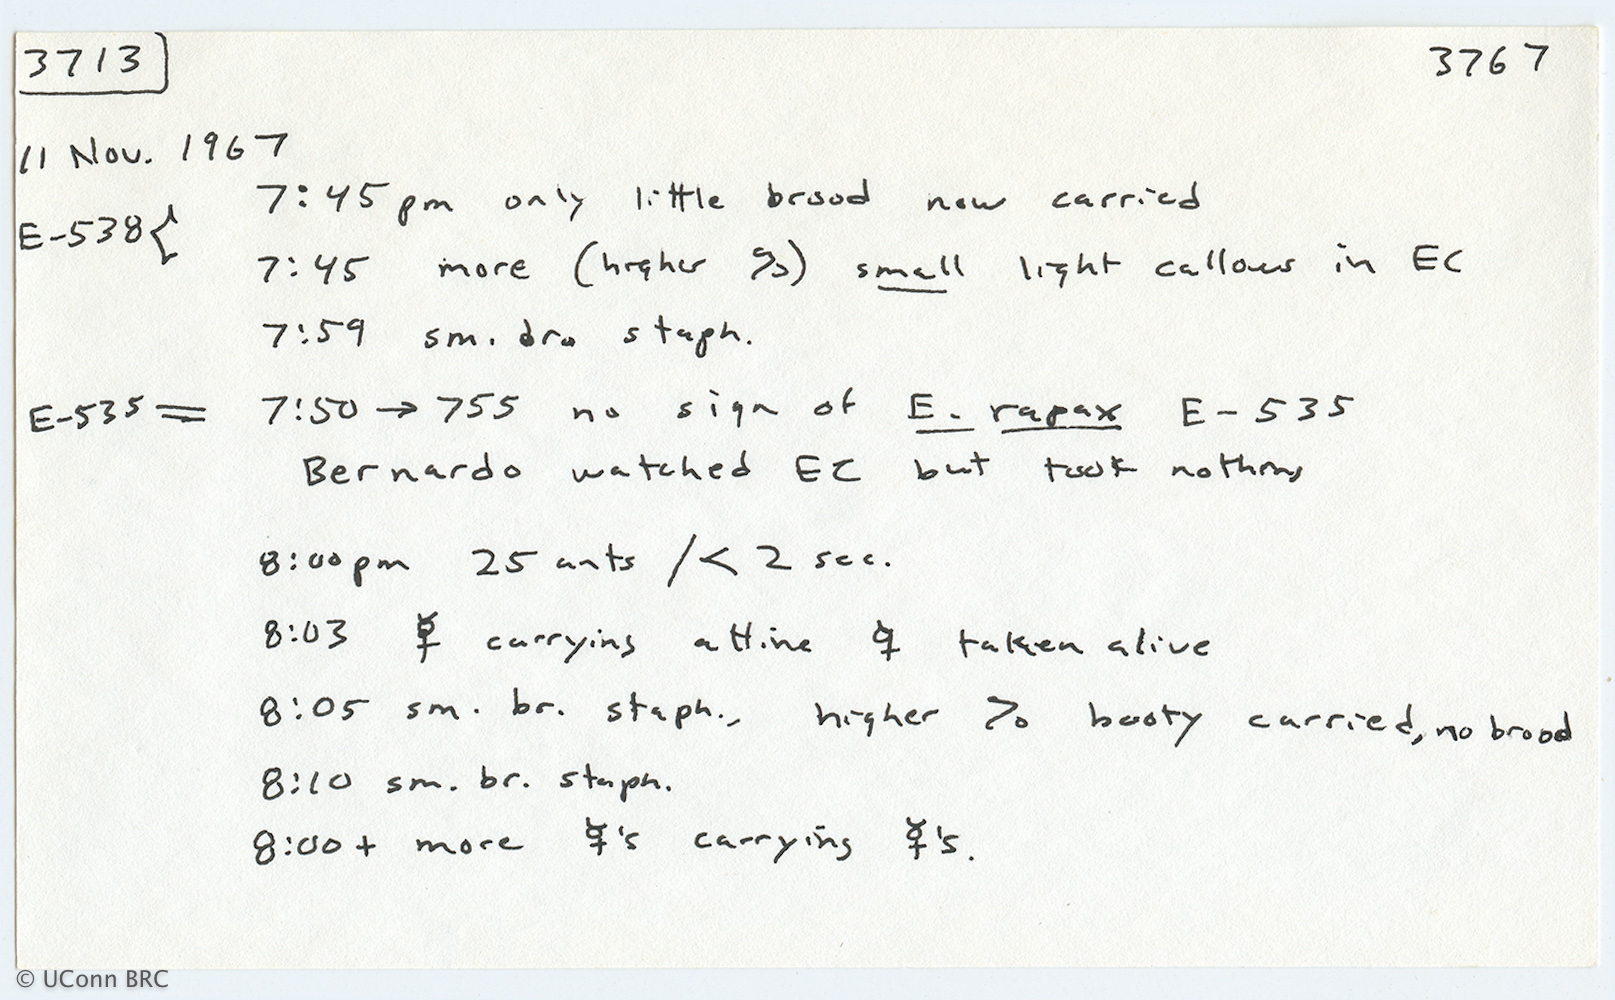 3713 3767
11 Nov. 1967
E-538 { 7:45 pm only little brood now carried
7:45 more (higher %) small light callows in EC
7:59 sm. br. staph.
E-535 = 7:50 → 755 no sign of E. rapax E-535
Bernardo watched EC but took nothing
8:00 pm 25 ants /< 2 sec.
8:03 ☿ carrying attine ♀ taken alive
8:05 sm. br. staph., higher % booty carried, no brood
8:10 sm. br. staph.
8:00+ more ☿'s carrying ☿'s.
© UConn BRC